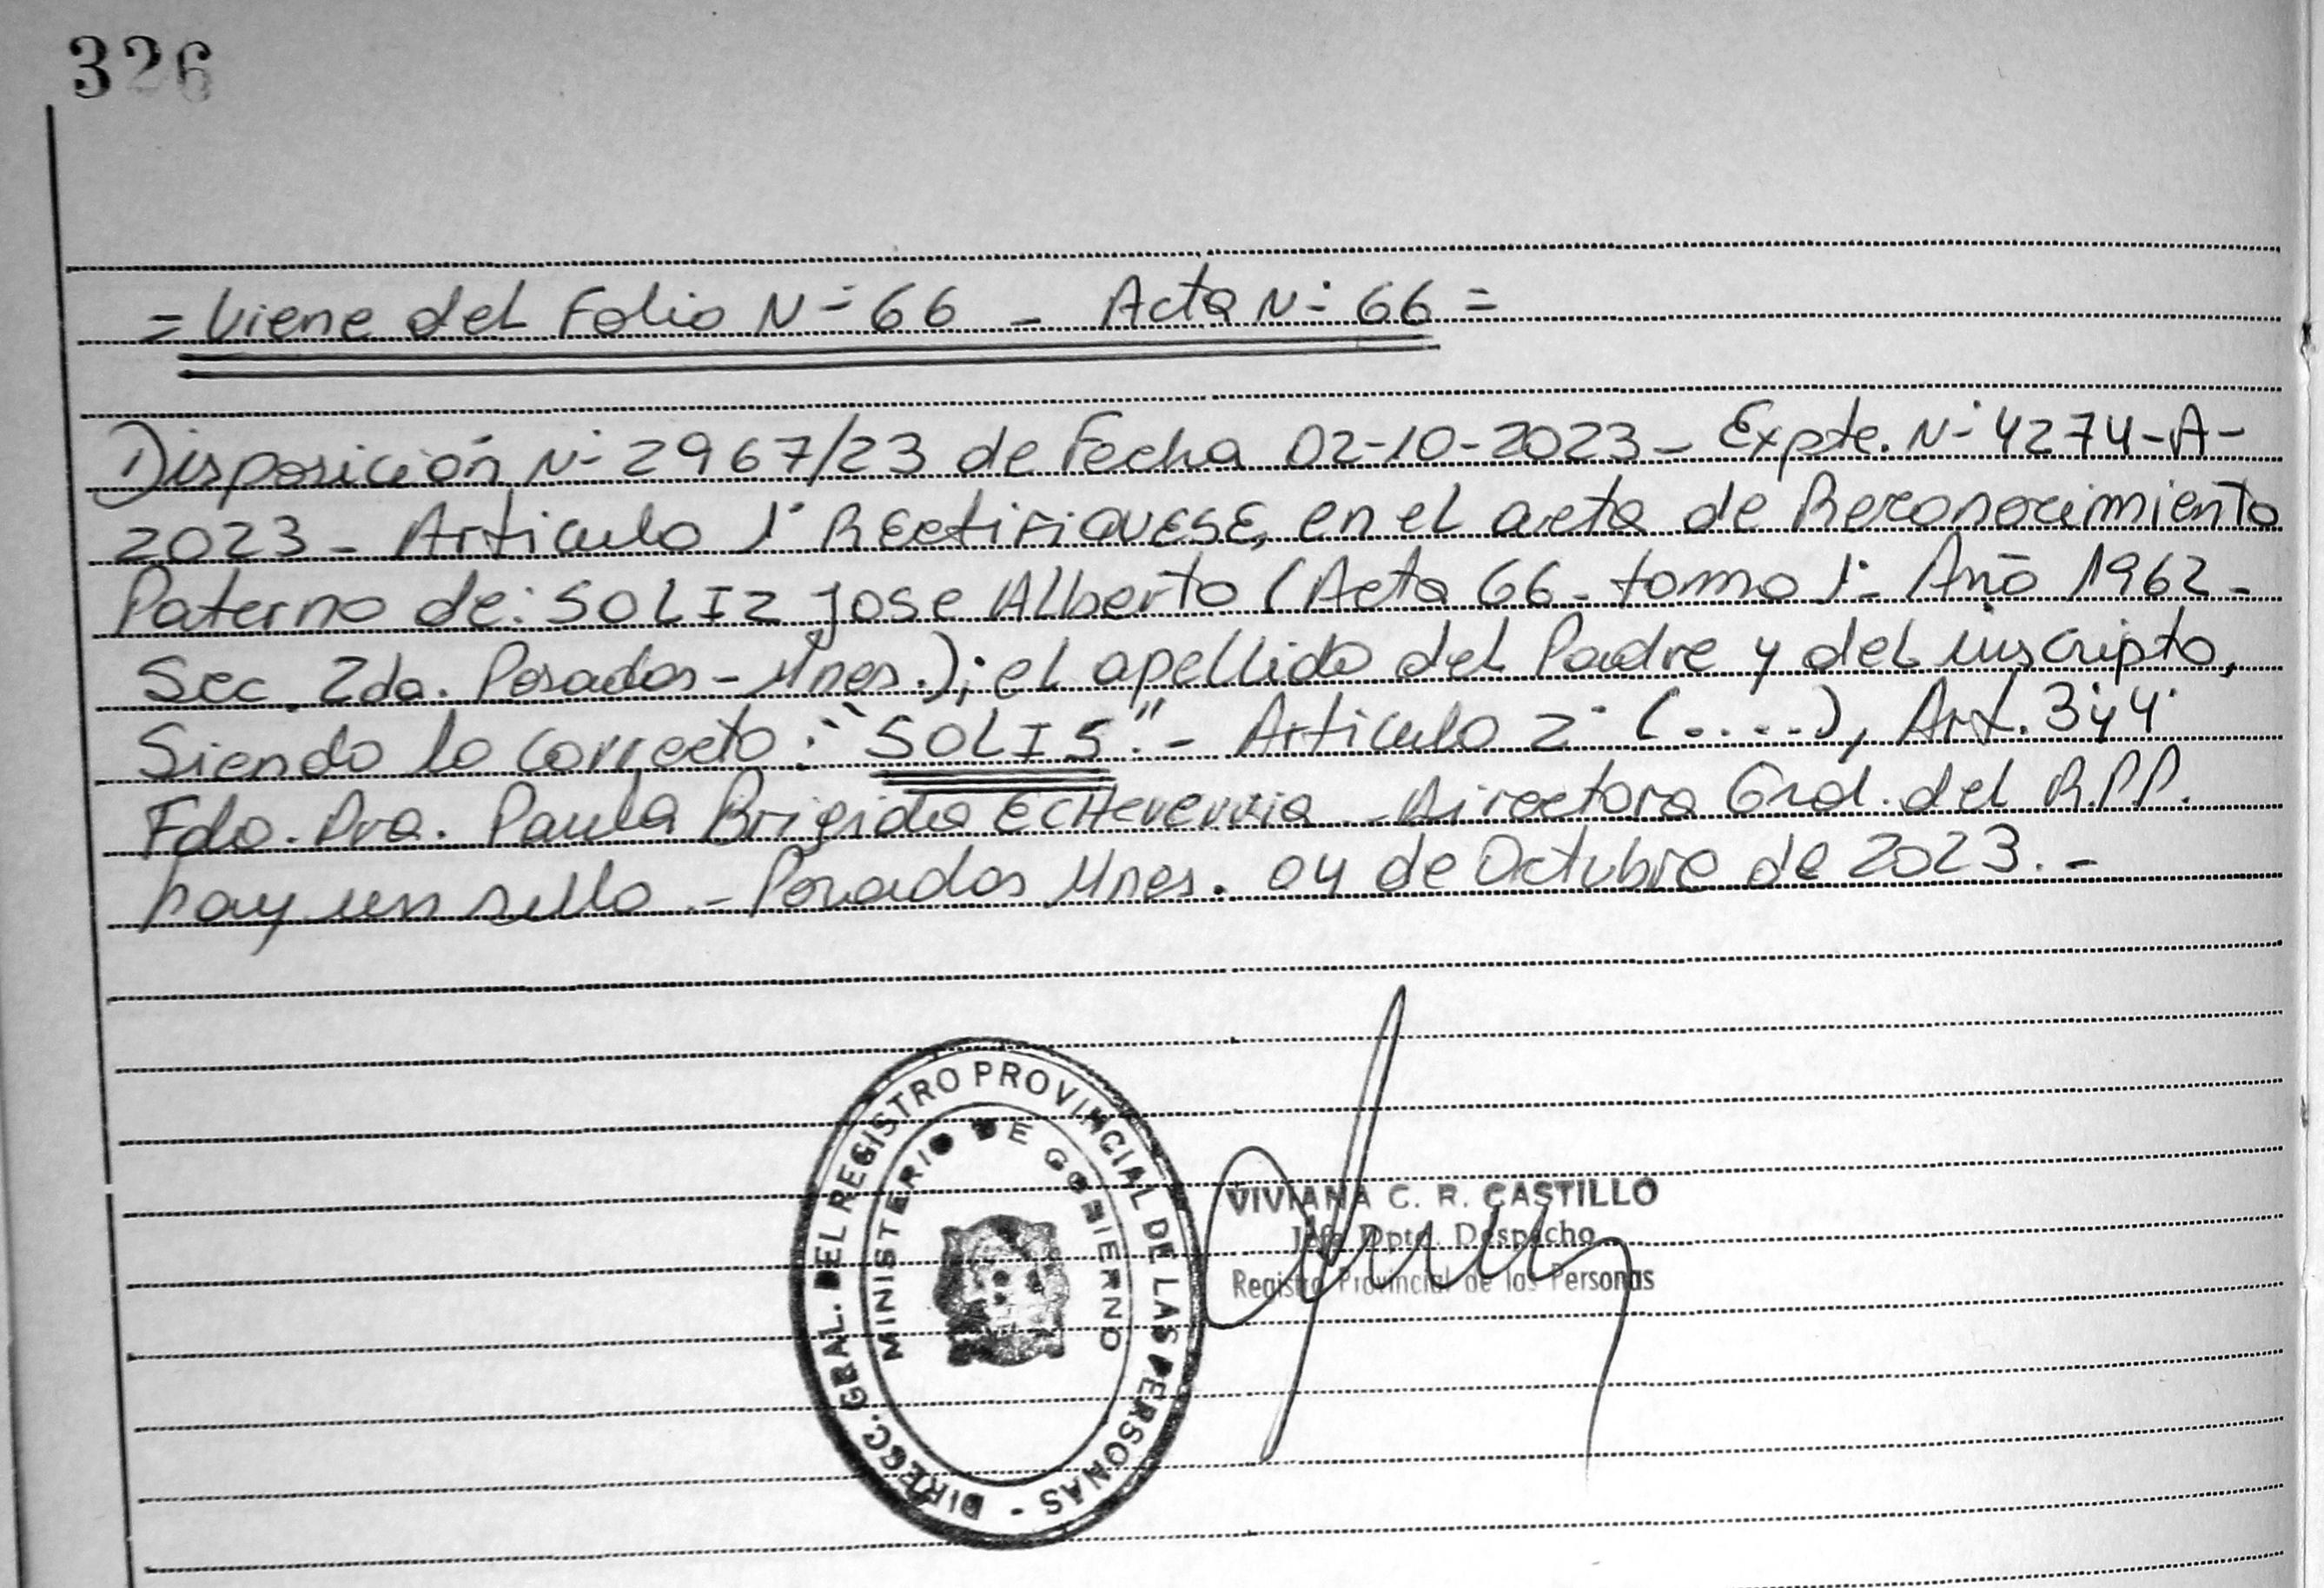 326
= Viene del Folio N° 66 - Acta N° 66 =
Disposición N° 2967/23 de Fecha 02-10-2023 - Expte. N° 4274-A-
2023 - Articulo 1° RECtiFiQUESE, en el acta de Reconocimiento
Paterno de: SOLIZ Jose Alberto (Acta 66 - tomo 1° - Año 1962 -
Sec. 2da. Posadas - Mnes.); el apellido del Padre y del inscripto,
Siendo lo correcto: "SOLIS". - Articulo 2° (.....), Art. 3° y 4°
Fdo. Dra. Paula Brigida ECHeverria - Directora Gral. del R.P.P.
hay un sello - Posadas Mnes. 04 de Octubre de 2023. -
DIRECC. GRAL. DEL REGISTRO PROVINCIAL DE LAS PERSONAS -
MINISTERIO DE GOBIERNO
VIVIANA C. R. CASTILLO
Jefa Dpto. Despacho
Registro Provincial de las Personas